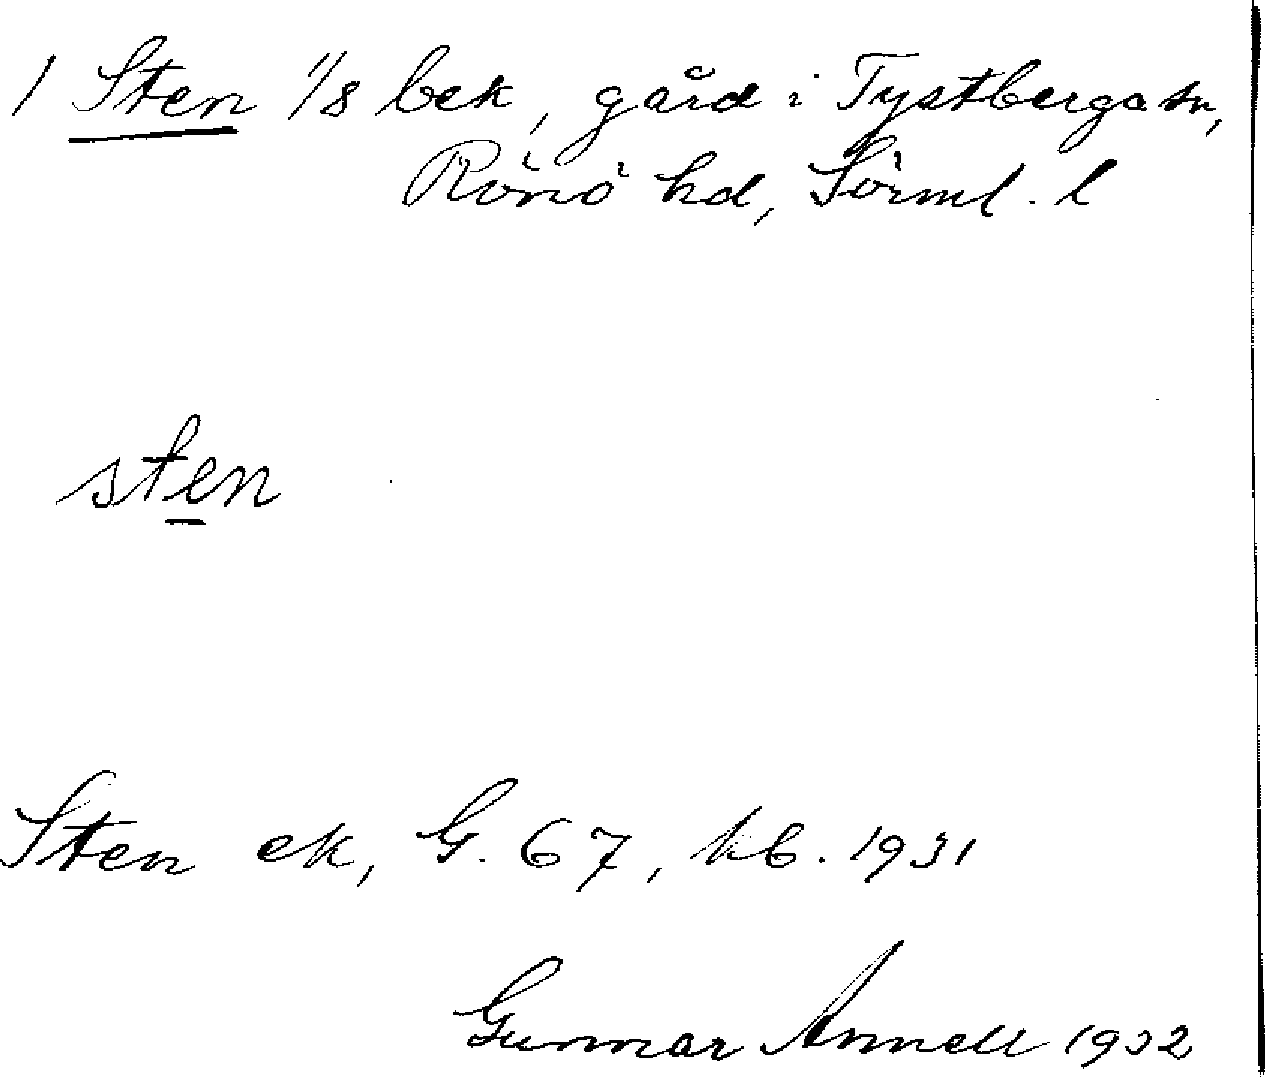 1 Sten 1/8 bek, gård i Tystberga sn,
Rönö hd, Sörml. l
sten
Sten ek, G. 67, kb. 1931
Gunnar Annell 1932